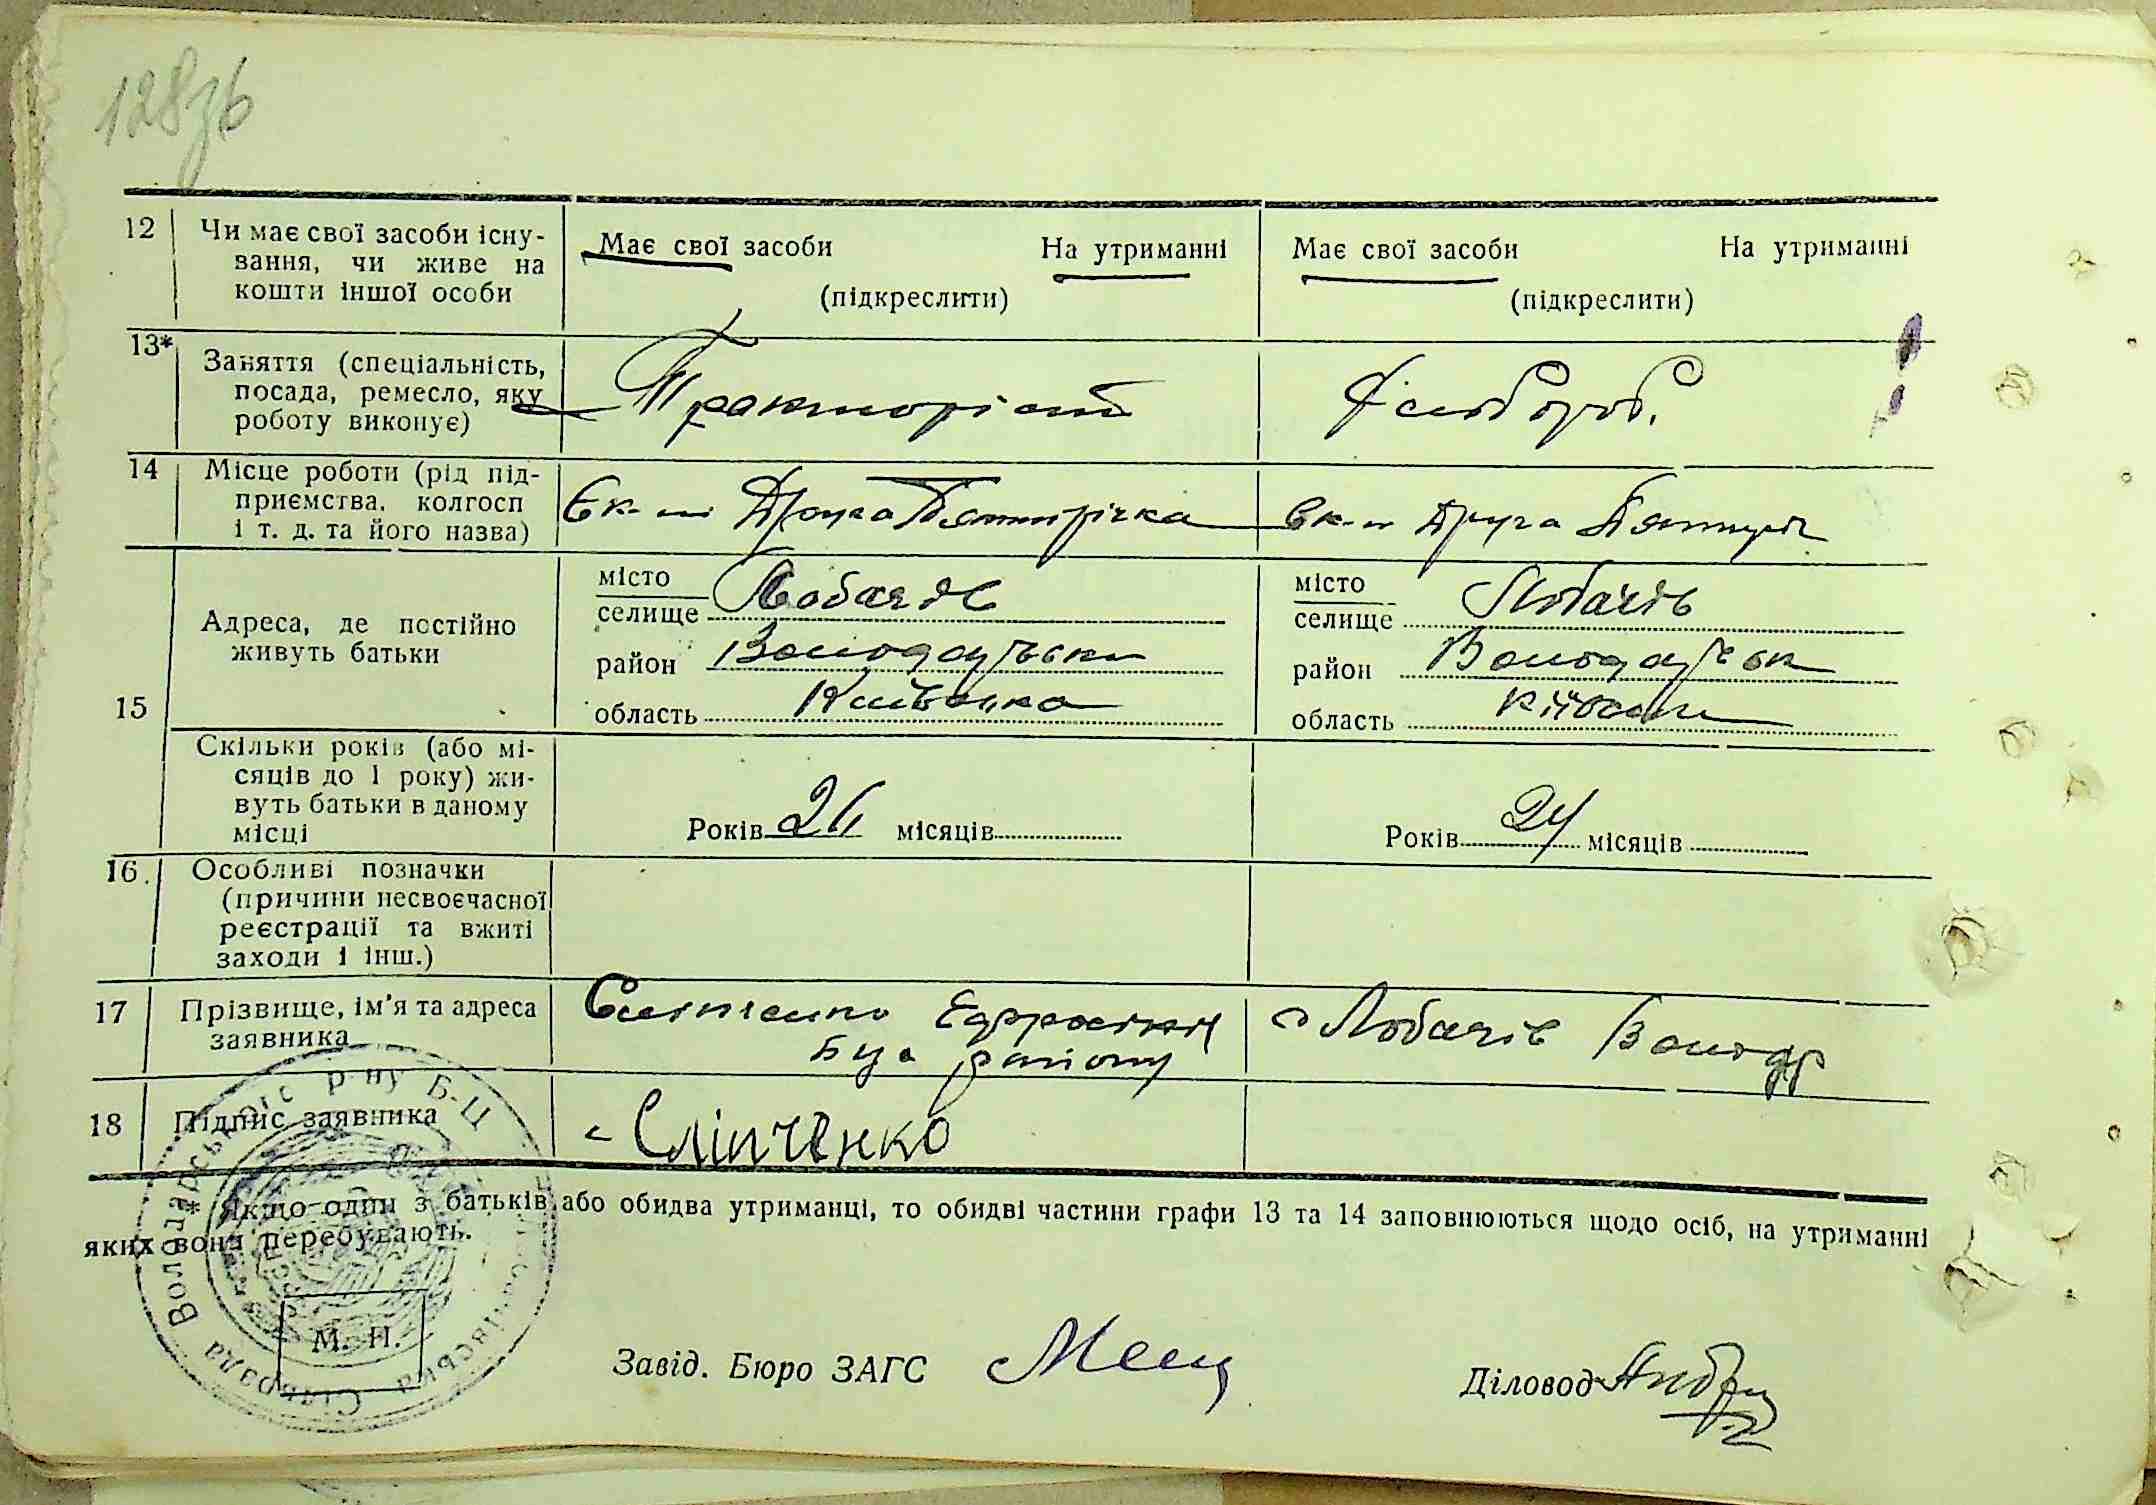 128зв
12 Чи має свої засоби існу-
вання, чи живе на
кошти іншої особи
Має свої засоби На утриманні
(підкреслити)
Має свої засоби На утриманні
(підкреслити)
13* Заняття (спеціальність,
посада, ремесло, яку
роботу виконує)
Тракторіст
14 Місце роботи (рід під-
приємства, колгосп
і т. д. та його назва)
Друга Пятирічка
Друга Пятиріч
15 Адреса, де постійно
живуть батьки
місто
селище Лобачів
район Володарськи
область Київська
місто
селище Лобачів
район Володарськ
область Київськ
Скільки років (або мі-
сяців до 1 року) жи-
вуть батьки в даному
місці
Років 26 місяців
Років 24 місяців
16. Особливі позначки
(причини несвоєчасної
реєстрації та вжиті
заходи і інш.)
17 Прізвище, ім'я та адреса
заявника
Сліпченко
району
с Лобачів Володар
18 Підпис заявника
Сліпченко
* Якщо один з батьків або обидва утриманці, то обидві частини графи 13 та 14 заповнюються щодо осіб, на утриманні
яких вони перебувають.
М. П.
Завід. Бюро ЗАГС
Діловод
Сільрада Володарського р-ну Б-Ц